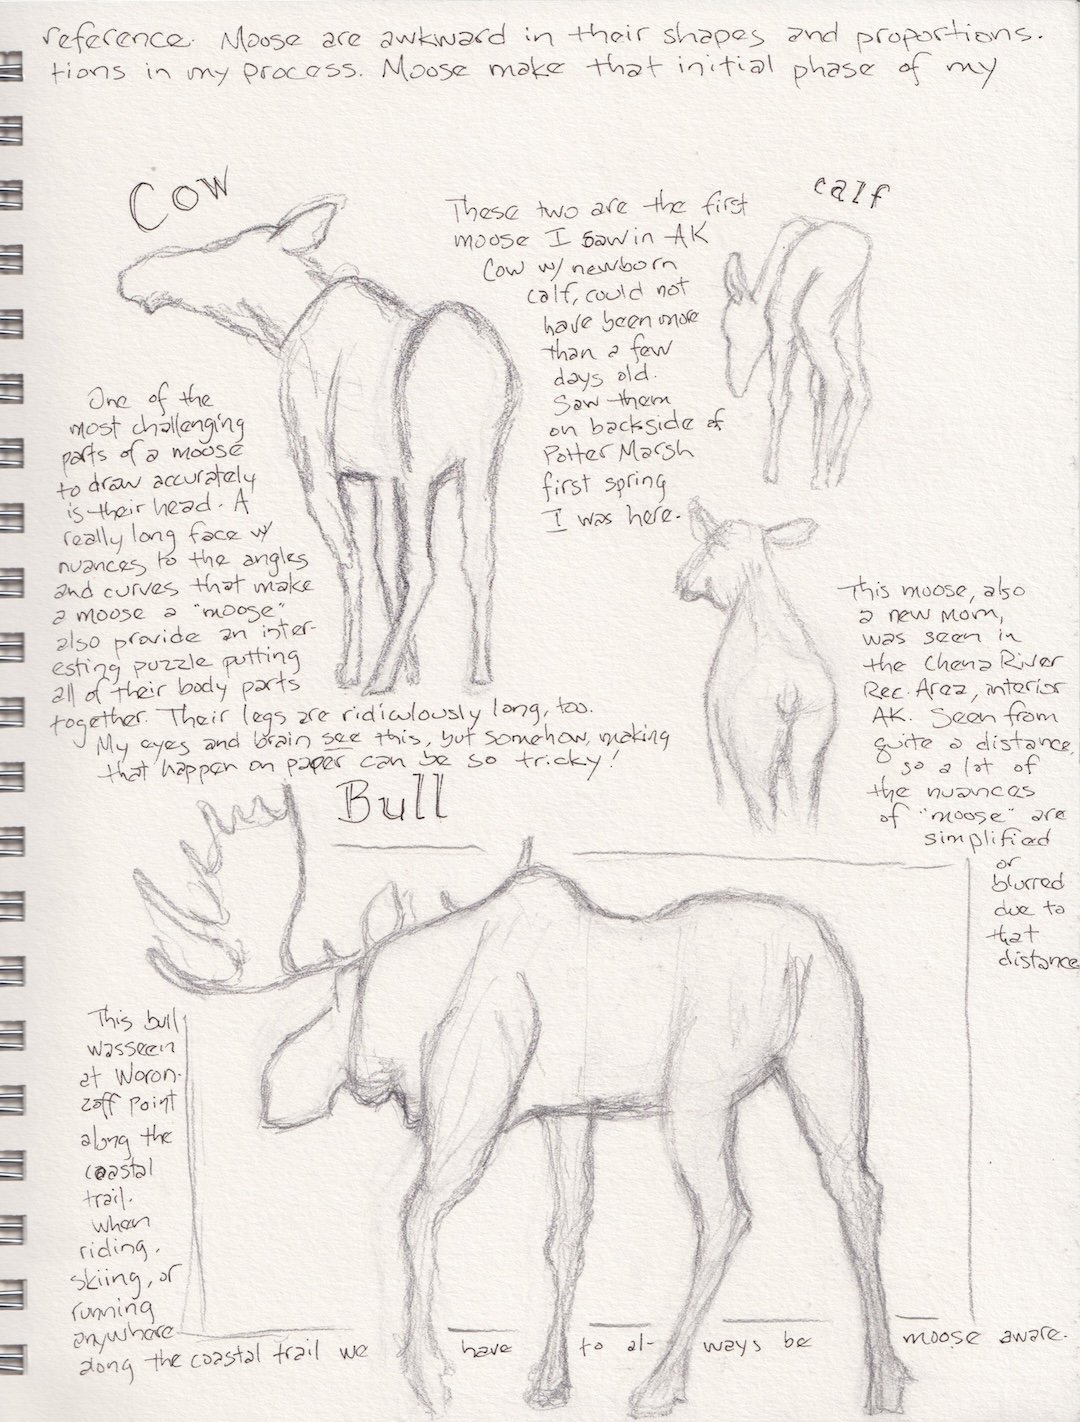 reference. Moose are awkward in their shapes and proportions.
tions in my process. Moose make that initial phase of my
Cow
These two are the first
moose I saw in AK
Cow w/ newborn
calf, could not
have been more
than a few
days old.
Saw them
on backside of
Potter Marsh
first spring
I was here.
calf
One of the
most challenging
parts of a moose
to draw accurately
is their head. A
really long face w/
nuances to the angles
and curves that make
a moose a "moose"
also provide an inter-
esting puzzle putting
all of their body parts
together. Their legs are ridiculously long, too.
My eyes and brain see this, but somehow, making
that happen on paper can be so tricky!
This moose, also
a new mom,
was seen in
the Chena River
Rec. Area, interior
AK. Seen from
quite a distance,
so a lot of
the nuances
of "moose" are
simplified
or
blurred
due to
that
distance
Bull
This bull
was seen
at Woron-
zoff Point
along the
coastal
trail.
When
riding,
skiing, or
running
anywhere
along the coastal trail we have to al- ways be moose aware.